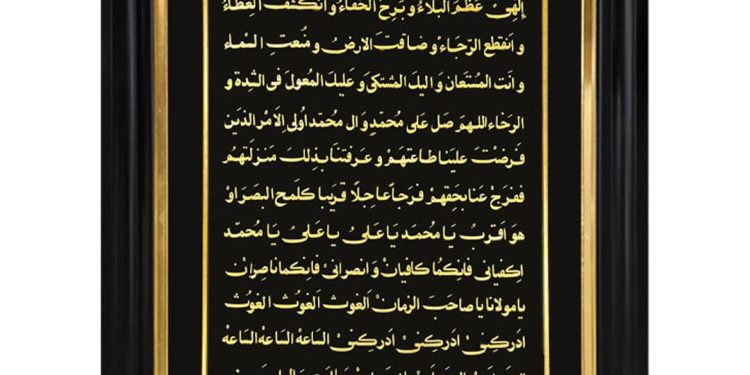 إلهي عظم البلاء و برح الخفاء و انكشف الغطاء
و انقطع الرجاء و ضاقت الارض و منعت السماء
و انت المستعان و اليك المشتكى و عليك المعول فى الشدة و
الرخاء اللهم صل على محمد و ال محمد اولى الامر الذين
فرضت علينا طاعتهم و عرفتنا بذلك منزلتهم
ففرج عنا بحقهم فرجا عاجلا قريبا كلمح البصر او
هو اقرب يا محمد يا على يا على يا محمد
اكفيانى فانكما كافيان و انصرانى فانكما ناصران
يا مولانا يا صاحب الزمان الغوث الغوث الغوث
ادركنى ادركنى ادركنى الساعه الساعه الساعه